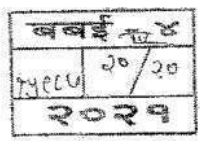 बबई - ४
१५९८५ २०/२०
२०२१